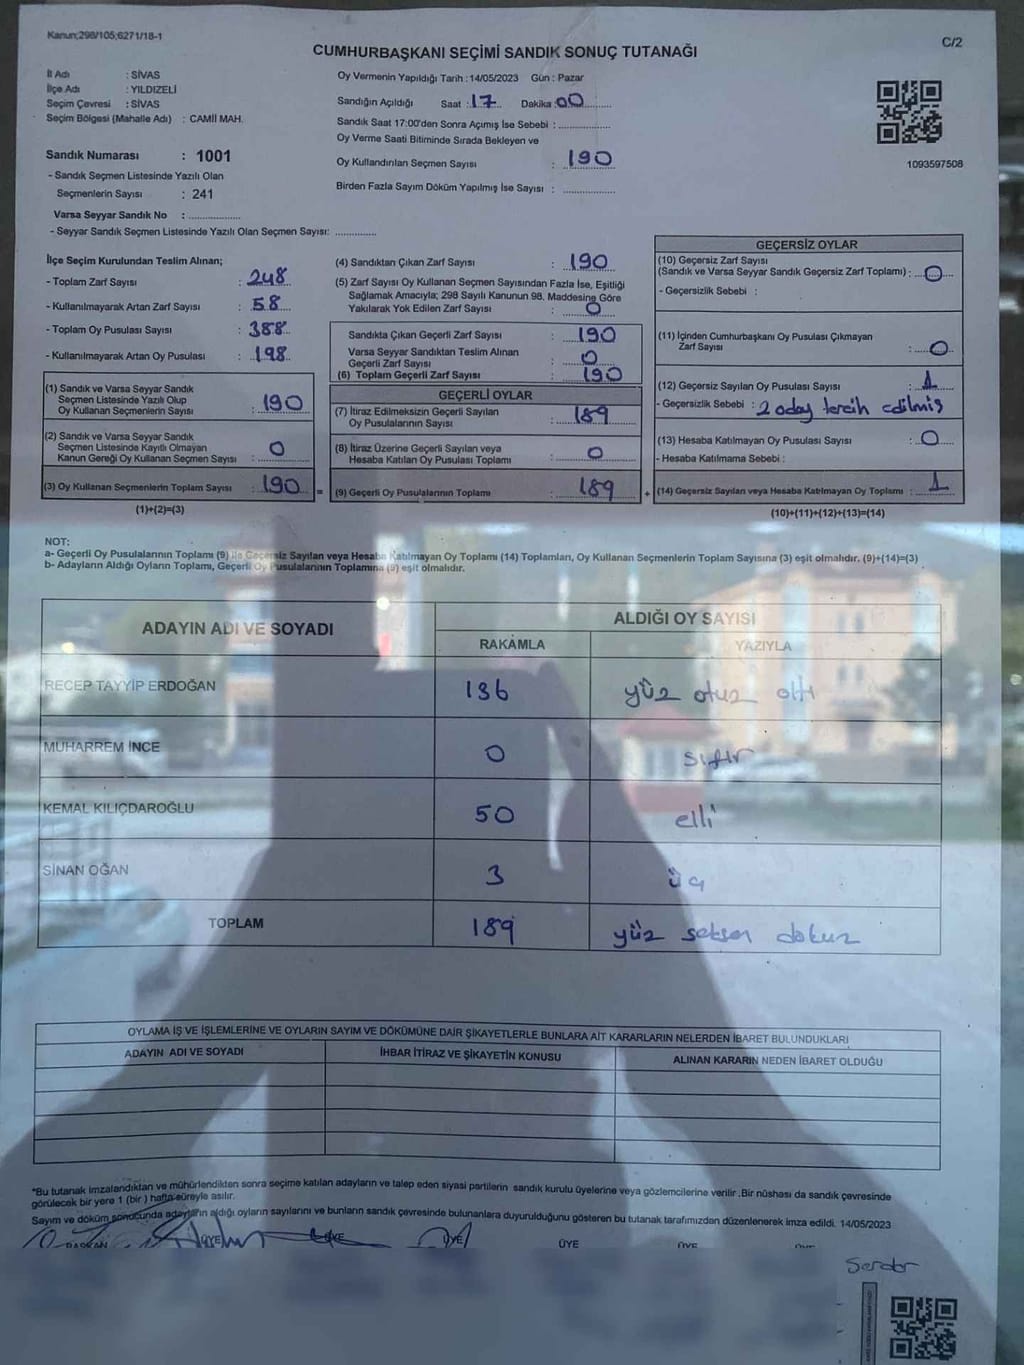 Kanun;298/105;6271/18-1
C/2
CUMHURBAŞKANI SEÇİMİ SANDIK SONUÇ TUTANAĞI
İl Adı : SİVAS
İlçe Adı : YILDIZELİ
Seçim Çevresi : SİVAS
Seçim Bölgesi (Mahalle Adı) : CAMİİ MAH.
Sandık Numarası : 1001
- Sandık Seçmen Listesinde Yazılı Olan
Seçmenlerin Sayısı : 241
Varsa Seyyar Sandık No : ..................
- Seyyar Sandık Seçmen Listesinde Yazılı Olan Seçmen Sayısı: ..............
Oy Vermenin Yapıldığı Tarih : 14/05/2023 Gün : Pazar
Sandığın Açıldığı Saat : 17 Dakika : 00
Sandık Saat 17:00'den Sonra Açımış İse Sebebi : ..................
Oy Verme Saati Bitiminde Sırada Bekleyen ve
Oy Kullandırılan Seçmen Sayısı : 190
Birden Fazla Sayım Döküm Yapılmış İse Sayısı : ..................
1093597508
İlçe Seçim Kurulundan Teslim Alınan;
- Toplam Zarf Sayısı : 248
- Kullanılmayarak Artan Zarf Sayısı : 58
- Toplam Oy Pusulası Sayısı : 388
- Kullanılmayarak Artan Oy Pusulası : 198
(1) Sandık ve Varsa Seyyar Sandık
Seçmen Listesinde Yazılı Olup
Oy Kullanan Seçmenlerin Sayısı : 190
(2) Sandık ve Varsa Seyyar Sandık
Seçmen Listesinde Kayıtlı Olmayan
Kanun Gereği Oy Kullanan Seçmen Sayısı : 0
(3) Oy Kullanan Seçmenlerin Toplam Sayısı : 190
(1)+(2)=(3)
(4) Sandıktan Çıkan Zarf Sayısı : 190
(5) Zarf Sayısı Oy Kullanan Seçmen Sayısından Fazla İse, Eşitliği
Sağlamak Amacıyla; 298 Sayılı Kanunun 98. Maddesine Göre
Yakılarak Yok Edilen Zarf Sayısı : 0
Sandıkta Çıkan Geçerli Zarf Sayısı : 190
Varsa Seyyar Sandıktan Teslim Alınan
Geçerli Zarf Sayısı : 0
(6) Toplam Geçerli Zarf Sayısı : 190
GEÇERLİ OYLAR
(7) İtiraz Edilmeksizin Geçerli Sayılan
Oy Pusulalarının Sayısı : 189
(8) İtiraz Üzerine Geçerli Sayılan veya
Hesaba Katılan Oy Pusulası Toplamı : 0
= (9) Geçerli Oy Pusulalarının Toplamı : 189 +
GEÇERSİZ OYLAR
(10) Geçersiz Zarf Sayısı
(Sandık ve Varsa Seyyar Sandık Geçersiz Zarf Toplamı) : 0
- Geçersizlik Sebebi :
(11) İçinden Cumhurbaşkanı Oy Pusulası Çıkmayan
Zarf Sayısı : 0
(12) Geçersiz Sayılan Oy Pusulası Sayısı : 1
- Geçersizlik Sebebi : 2 aday tercih edilmiş
(13) Hesaba Katılmayan Oy Pusulası Sayısı : 0
- Hesaba Katılmama Sebebi :
(14) Geçersiz Sayılan veya Hesaba Katılmayan Oy Toplamı : 1
(10)+(11)+(12)+(13)=(14)
NOT:
a- Geçerli Oy Pusulalarının Toplamı (9) ile Geçersiz Sayılan veya Hesaba Katılmayan Oy Toplamı (14) Toplamları, Oy Kullanan Seçmenlerin Toplam Sayısına (3) eşit olmalıdır. (9)+(14)=(3)
b- Adayların Aldığı Oyların Toplamı, Geçerli Oy Pusulalarının Toplamına (9) eşit olmalıdır.
ADAYIN ADI VE SOYADI
ALDIĞI OY SAYISI
RAKAMLA YAZIYLA
RECEP TAYYİP ERDOĞAN 136 yüz otuz altı
MUHARREM İNCE 0 sıfır
KEMAL KILIÇDAROĞLU 50 elli
SİNAN OĞAN 3 üç
TOPLAM 189 yüz seksen dokuz
OYLAMA İŞ VE İŞLEMLERİNE VE OYLARIN SAYIM VE DÖKÜMÜNE DAİR ŞİKAYETLERLE BUNLARA AİT KARARLARIN NELERDEN İBARET BULUNDUKLARI
ADAYIN ADI VE SOYADI İHBAR İTİRAZ VE ŞİKAYETİN KONUSU ALINAN KARARIN NEDEN İBARET OLDUĞU
*Bu tutanak imzalandıktan ve mühürlendikten sonra seçime katılan adayların ve talep eden siyasi partilerin sandık kurulu üyelerine veya gözlemcilerine verilir .Bir nüshası da sandık çevresinde
görülecek bir yere 1 (bir ) hafta süreyle asılır.
Sayım ve döküm sonucunda adayların aldığı oyların sayılarını ve bunların sandık çevresinde bulunanlara duyurulduğunu gösteren bu tutanak tarafımızdan düzenlenerek imza edildi. 14/05/2023
BAŞKAN ÜYE ÜYE ÜYE ÜYE ÜYE
Serdar